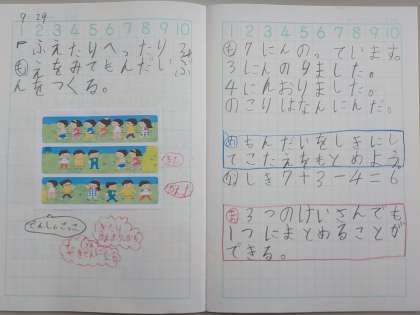 9.29
1 2 3 4 5 6 7 8 9 10
ふえたりへったり
も えをみてもんだい
んをつくる。
でんしゃごっこ
1 2 3 4 5 6 7 8 9 10
も 7にんのっています。
3にんのりました。
4にんおりました。
のこりはなんにんだ。
め もんだいをしきにし
てこたえをもとめよう
しき 7+3-4=6
ま 3つのけいさんでも
1つにまとめることが
できる。